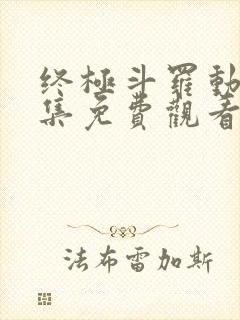 终極斗羅動
集免費觀看
法布雷加斯